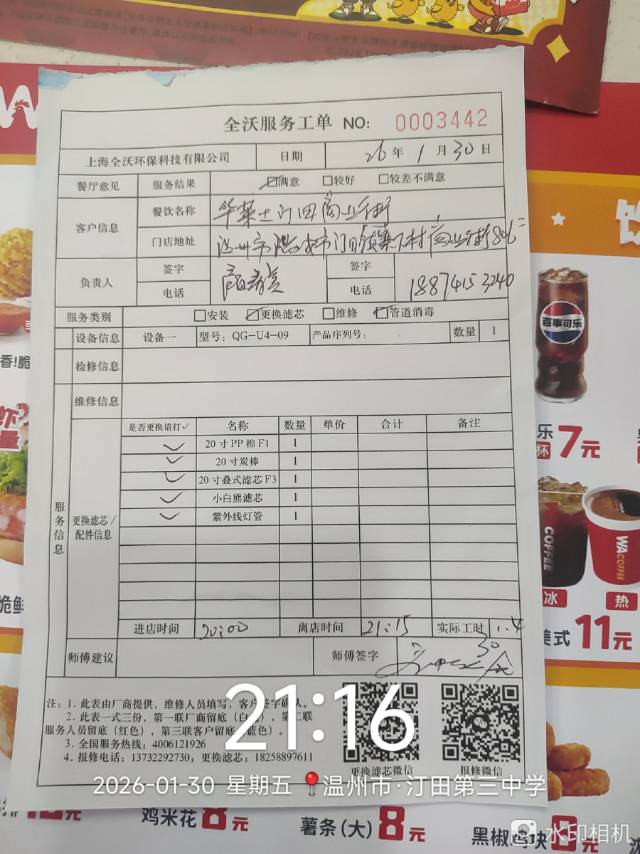 全沃服务工单 NO: 0003442
上海全沃环保科技有限公司 日期 26 年 1 月 30 日
餐厅意见 服务结果 ☑满意 □较好 □较差不满意
客户信息 餐饮名称 华莱士汀田商业街
门店地址
负责人 签字 签字
电话 电话 18874153240
服务类别 □安装 ☑更换滤芯 □维修 ☑管道消毒
设备信息 设备一 型号: QG-U4-09 产品序列号: 数量 1
检修信息
维修信息
服务信息
更换滤芯/配件信息
是否更换请打✓ 名称 数量 单价 合计 备注
✓ 20寸PP棉F1 1
✓ 20寸炭棒 1
✓ 20寸叠式滤芯F3 1
✓ 小白熊滤芯 1
✓ 紫外线灯管 1
进店时间 20:00 离店时间 21:15 实际工时 1.4
师傅建议 师傅签字
注: 1. 此表由厂商提供, 维修人员填写, 客户签字确认。
2. 此表一式三份, 第一联厂商留底(白色), 第二联
服务人员留底(红色), 第三联客户留底(蓝色)。
3. 全国服务热线: 4006121926
4. 报修电话: 13732292730; 更换滤芯: 18258897611
更换滤芯微信 报修微信
21:16
2026-01-30 星期五 温州市·汀田第三中学
水印相机
百事可乐
7元
COFFEE
WA
COFFEE
冰 热
美式 11元
鸡米花 8元
薯条(大) 8元
黑椒鸡块 8元